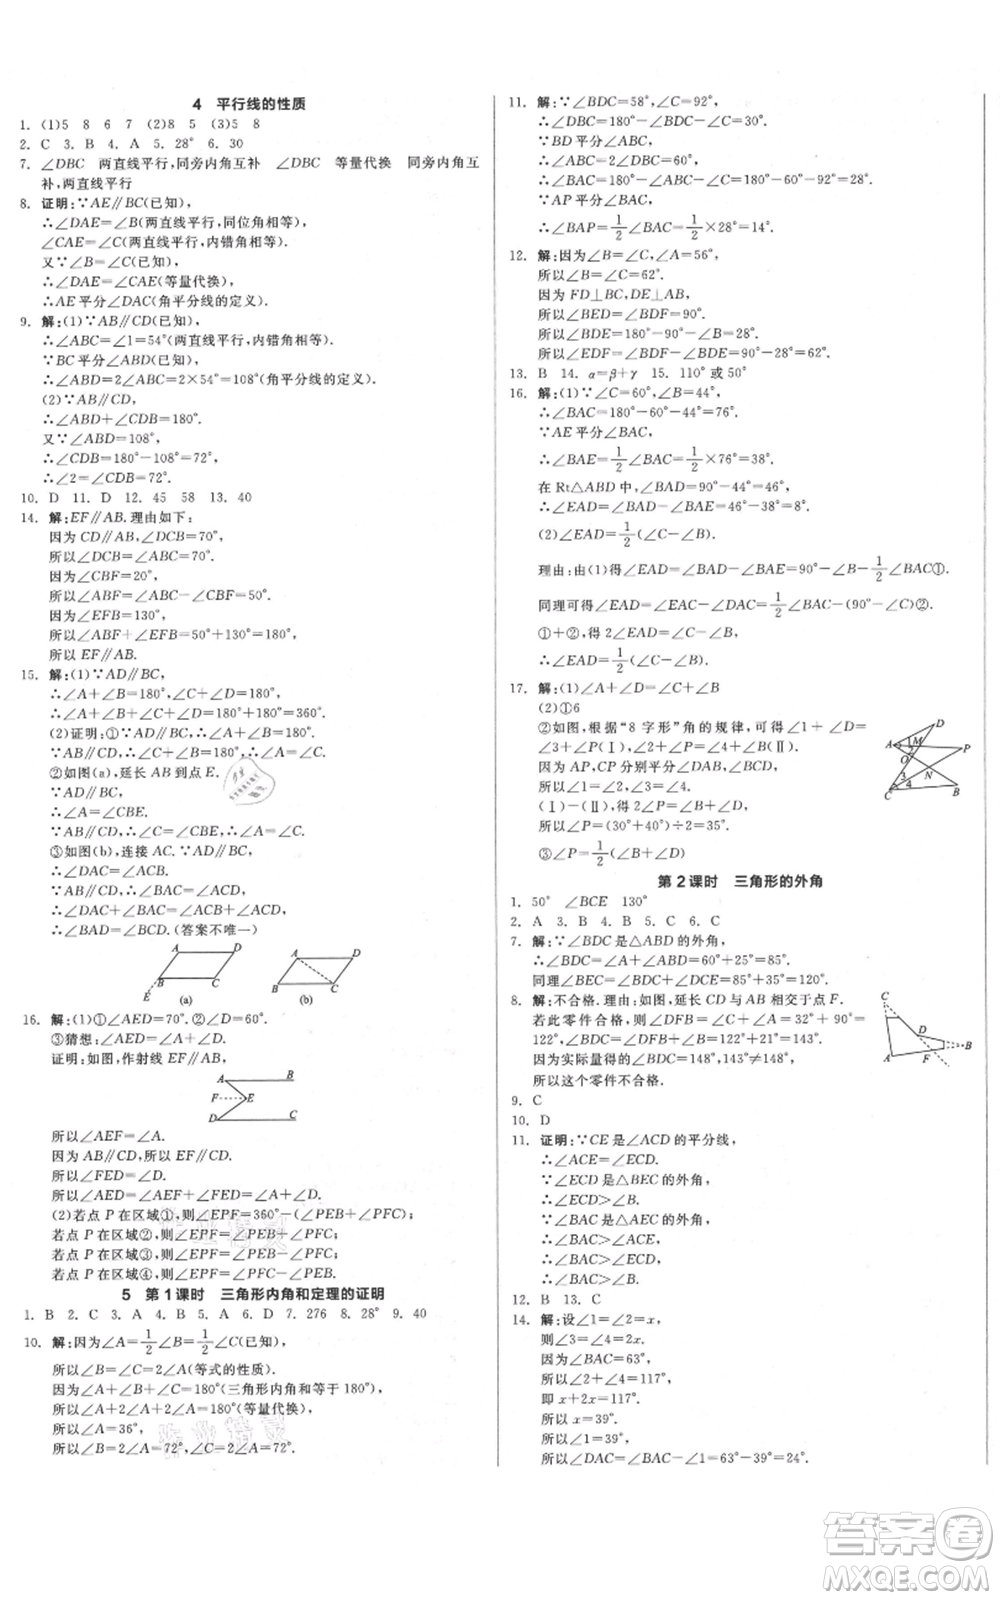 4 平行线的性质
1. (1)5 8 6 7 (2)8 5 (3)5 8
2. C 3. B 4. A 5. 28° 6. 30
7. ∠DBC 两直线平行,同旁内角互补 ∠DBC 等量代换 同旁内角互
补,两直线平行
8. 证明:∵AE∥BC(已知),
∴∠DAE=∠B(两直线平行,同位角相等),
∠CAE=∠C(两直线平行,内错角相等).
又∵∠B=∠C(已知),
∴∠DAE=∠CAE(等量代换),
∴AE平分∠DAC(角平分线的定义).
9. 解:(1)∵AB∥CD(已知),
∴∠ABC=∠1=54°(两直线平行,内错角相等).
∵BC平分∠ABD(已知),
∴∠ABD=2∠ABC=2×54°=108°(角平分线的定义).
(2)∵AB∥CD,
∴∠ABD+∠CDB=180°.
又∵∠ABD=108°,
∴∠CDB=180°-108°=72°,
∴∠2=∠CDB=72°.
10. D 11. D 12. 45 58 13. 40
14. 解:EF∥AB.理由如下:
因为CD∥AB,∠DCB=70°,
所以∠DCB=∠ABC=70°.
因为∠CBF=20°,
所以∠ABF=∠ABC-∠CBF=50°.
因为∠EFB=130°,
所以∠ABF+∠EFB=50°+130°=180°,
所以EF∥AB.
15. 解:(1)∵AD∥BC,
∴∠A+∠B=180°,∠C+∠D=180°,
∴∠A+∠B+∠C+∠D=180°+180°=360°.
(2)证明:①∵AD∥BC,∴∠A+∠B=180°.
∵AB∥CD,∴∠B+∠C=180°,∴∠A=∠C.
②如图(a),延长AB到点E.
∵AD∥BC,
∴∠A=∠CBE.
∵AB∥CD,∴∠C=∠CBE,∴∠A=∠C.
③如图(b),连接AC.∵AB∥CD,
∴∠DCA=∠BAC.
∵AD∥BC,∴∠DAC=∠BCA,
∴∠DAC+∠BAC=∠BCA+∠DCA,
∴∠BAD=∠BCD.(答案不唯一)
A D A D
B C B C
E
(a) (b)
16. 解:(1)①∠AED=70°.②∠AED=70°.
③猜想:∠AED=∠A+∠D.
证明:如图,作射线EF∥AB.
A B
F E
D C
所以∠AEF=∠A.
因为AB∥CD,所以EF∥CD,
所以∠DEF=∠D,
所以∠AED=∠AEF+∠FED=∠A+∠D.
(2)若点P在区域①,则∠EPF=360°-(∠PEB+∠PFC);
若点P在区域②,则∠EPF=∠PEB+∠PFC;
若点P在区域③,则∠EPF=∠PEB-∠PFC;
若点P在区域④,则∠EPF=∠PFC-∠PEB.
5 第1课时 三角形内角和定理的证明
1. B 2. C 3. A 4. B 5. A 6. B 7. 276 8. 28° 9. 40
10. 解:因为∠A=1/2∠B=1/2∠C(已知),
所以∠B=∠C=2∠A(等式的性质).
因为∠A+∠B+∠C=180°(三角形内角和等于180°),
所以∠A+2∠A+2∠A=180°(等量代换),
所以∠A=36°,
所以∠B=2∠A=72°,∠C=2∠A=72°.
11. 解:∵∠BDC=58°,∠C=92°,
∴∠DBC=180°-∠BDC-∠C=30°.
∵BD平分∠ABC,
∴∠ABC=2∠DBC=60°,
∴∠BAC=180°-60°-92°=28°.
∵AP平分∠BAC,
∴∠BAP=1/2∠BAC=1/2×28°=14°.
12. 解:因为∠B=∠C,∠A=56°,
所以∠B=∠C=62°.
因为FD⊥BC,DE⊥AB,
所以∠BED=∠BDF=90°.
所以∠BDE=180°-90°-∠B=28°.
所以∠EDF=∠BDF-∠BDE=62°.
13. B 14. α=β+γ 15. 110°或50°
16. 解:(1)∵∠C=60°,∠B=44°,
∴∠BAC=180°-60°-44°=76°.
∵AE平分∠BAC,
∴∠BAE=1/2∠BAC=1/2×76°=38°.
在Rt△ABD中,∠BAD=90°-44°=46°,
∴∠EAD=∠BAD-∠BAE=46°-38°=8°.
(2)∠EAD=1/2(∠C-∠B).
理由:由(1)得∠EAD=∠BAD-∠BAE=90°-∠B-1/2∠BAC①.
同理可得∠EAD=∠CAE-∠CAD=1/2∠BAC-(90°-∠C)②.
①+②,得2∠EAD=∠C-∠B,
∴∠EAD=1/2(∠C-∠B).
17. 解:(1)∠A+∠D=∠C+∠B
(2)①6
②如图,根据“8字形”角的规律,可得∠1+∠D=
∠3+∠P(Ⅰ),∠2+∠P=∠4+∠B(Ⅱ).
因为AP,CP分别平分∠DAB和∠BCD,
所以∠1=∠2,∠3=∠4.
(Ⅰ)-(Ⅱ),得2∠P=∠D+∠B,
所以∠P=(30°+40°)÷2=35°.
③∠P=1/2(∠B+∠D)
D
A 1 M P
2
O
3 N
4
C B
第2课时 三角形的外角
1. 50° ∠BCE 130°
2. A 3. B 4. B 5. C 6. C
7. 解:∵∠BDC是△ABD的外角,
∴∠BDC=∠A+∠ABD=60°+25°=85°.
同理∠BEC=∠BDC+∠DCE=85°+35°=120°.
8. 解:不合格.理由:如图,延长CD与AB相交于点F.
若此零件合格,则∠DFB=∠C+∠A=32°+90°=
122°,∠BDC=∠DFB+∠B=122°+21°=143°.
因为实际量得的∠BDC=148°,143°≠148°,
所以这个零件不合格.
C
D
B
A F
9. C
10. D
11. 证明:∵CE是∠ACD的平分线,
∴∠ACE=∠ECD.
∵∠ECD是△BEC的外角,
∴∠ECD>∠B.
∵∠BAC是△AEC的外角,
∴∠BAC>∠ACE,
∴∠BAC>∠ECD,
∴∠BAC>∠B.
12. B 13. C
14. 解:设∠1=∠2=x,
则∠3=∠4=2x.
因为∠BAC=63°,
所以∠2+∠4=117°,
即x+2x=117°,
所以x=39°.
所以∠DAC=∠BAC-∠1=63°-39°=24°.
答案卷
MXQE.COM